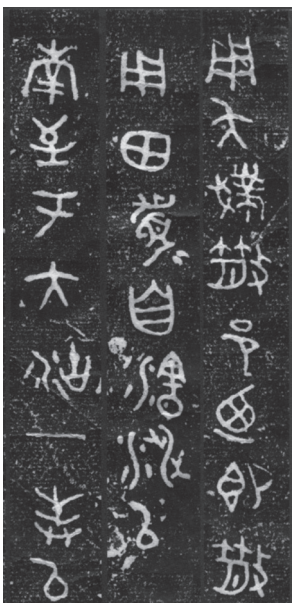 用夨撲散邑廼即散
用田眉自瀗涉以
南至于大沽一奉以